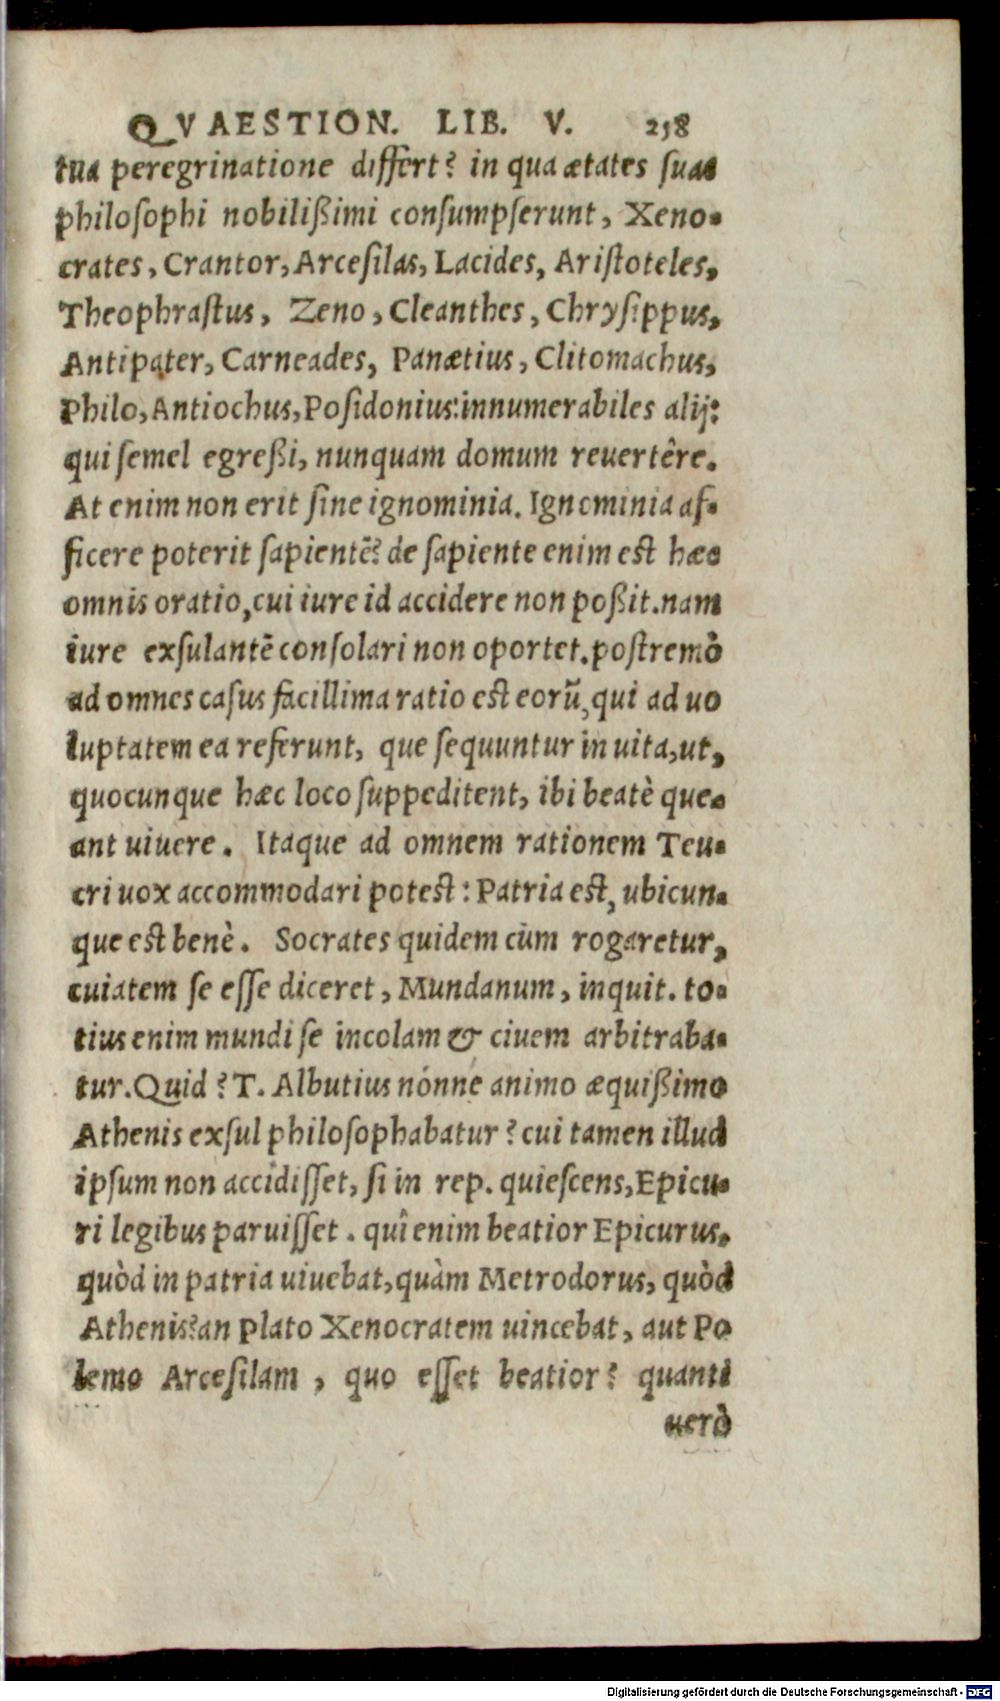 QVAESTION. LIB. V. 258
tua peregrinatione differt? in qua ætates suas
philosophi nobilißimi consumpserunt, Xeno-
crates, Crantor, Arcesilas, Lacides, Aristoteles,
Theophrastus, Zeno, Cleanthes, Chrysippus,
Antipater, Carneades, Panætius, Clitomachus,
Philo, Antiochus, Posidonius: innumerabiles alij:
qui semel egreßi, nunquam domum reuertêre.
At enim non erit sine ignominia. Ignominia af-
ficere poterit sapientē? de sapiente enim est hæc
omnis oratio, cui iure id accidere non poßit. nam
iure exsulantē consolari non oportet. postremò
ad omnes casus facillima ratio est eorū, qui ad uo
luptatem ea referunt, que sequuntur in uita, ut,
quocunque hæc loco suppeditent, ibi beatè que-
ant uiuere. Itaque ad omnem rationem Teu-
cri uox accommodari potest: Patria est, ubicun-
que est benè. Socrates quidem cùm rogaretur,
cuiatem se esse diceret, Mundanum, inquit. to-
tius enim mundi se incolam & ciuem arbitraba-
tur. Quid? T. Albutius nónne animo æquißimo
Athenis exsul philosophabatur? cui tamen illud
ipsum non accidisset, si in rep. quiescens, Epicu-
ri legibus paruisset. quî enim beatior Epicurus,
quòd in patria uiuebat, quàm Metrodorus, quòd
Athenis? an Plato Xenocratem uincebat, aut Po
lemo Arcesilam, quo esset beatior? quanti
uerò
Digitalisierung gefördert durch die Deutsche Forschungsgemeinschaft - DFG